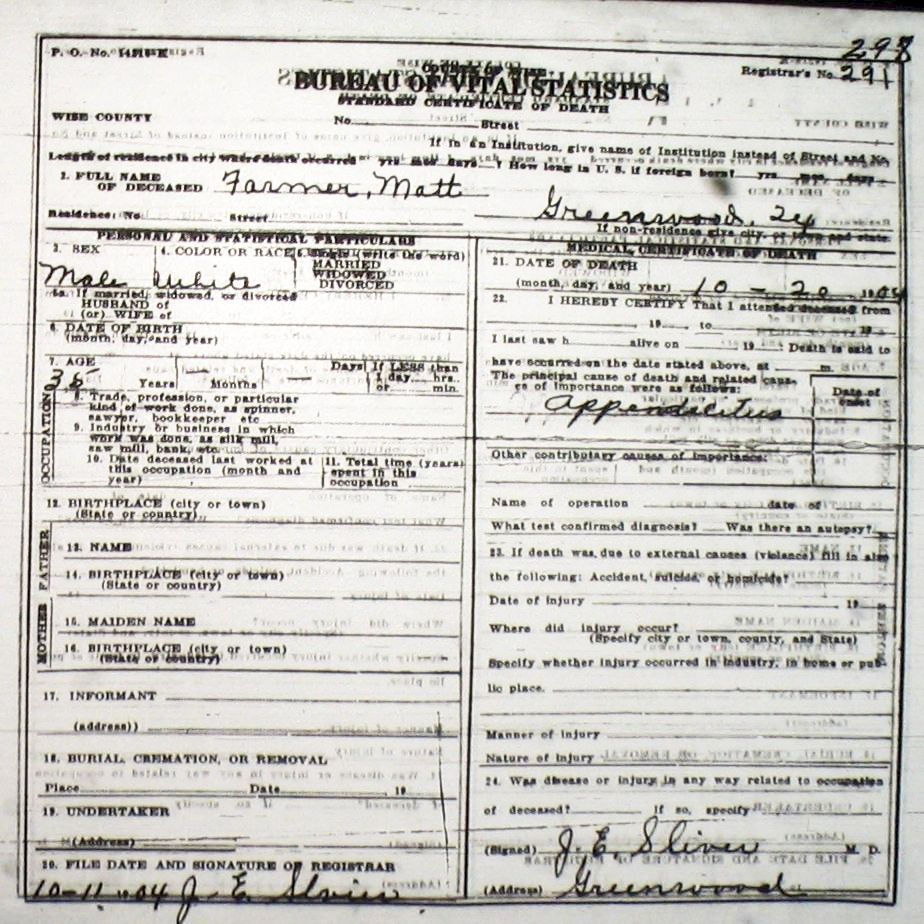 P. O. No.
298
Registrar's No. 291
BUREAU OF VITAL STATISTICS
STANDARD CERTIFICATE OF DEATH
WISE COUNTY
No. Street
If in an Institution, give name of Institution instead of Street and No
Length of residence in city where death occurred yrs mos days ? How long in U. S. if foreign born? yrs mos days
1. FULL NAME OF DECEASED Farmer, Matt
Greenwood, Tex
Residence: No Street If non-residence give city, or town and state
PERSONAL AND STATISTICAL PARTICULARS
3. SEX 4. COLOR OR RACE 5. Single (write the word)
MARRIED
WIDOWED
DIVORCED
Male White
5a. If married, widowed, or divorced
HUSBAND of
(or) WIFE of
6. DATE OF BIRTH
(month, day, and year)
7. AGE Days If LESS than
35 Years Months 1 day hrs. or min.
OCCUPATION
8. Trade, profession, or particular
kind of work done, as spinner,
sawyer, bookkeeper etc
9. Industry or business in which
work was done, as silk mill,
saw mill, bank, etc.
10. Date deceased last worked at
this occupation (month and
year)
11. Total time (years)
spent in this
occupation
12. BIRTHPLACE (city or town)
(State or country)
FATHER
13. NAME
14. BIRTHPLACE (city or town)
(State or country)
MOTHER
15. MAIDEN NAME
16. BIRTHPLACE (city or town)
(State or country)
17. INFORMANT
(address))
18. BURIAL, CREMATION, OR REMOVAL
Place Date 19
19. UNDERTAKER
(Address)
20. FILE DATE AND SIGNATURE OF REGISTRAR
10-11-04 J. E. Sliver
MEDICAL CERTIFICATE OF DEATH
21. DATE OF DEATH
(month, day, and year) 10 - 20 1904
22. I HEREBY CERTIFY That I attended deceased from
19 , to 19
I last saw h alive on , 19 Death is said to
have occurred on the date stated above, at m.
The principal cause of death and related caus-
es of importance were as follows: Date of onset
Appendicitus
Other contributory causes of importance:
Name of operation date of
What test confirmed diagnosis? Was there an autopsy?
23. If death was due to external causes (violence) fill in also
the following: Accident, suicide, or homicide?
Date of injury 19
Where did injury occur?
(Specify city or town, county, and State)
Specify whether injury occurred in industry, in home or pub-
lic place.
Manner of injury
Nature of injury
24. Was disease or injury in any way related to occupation
of deceased? If so, specify
(Signed) J. E. Sliver M. D.
(Address) Greenwood